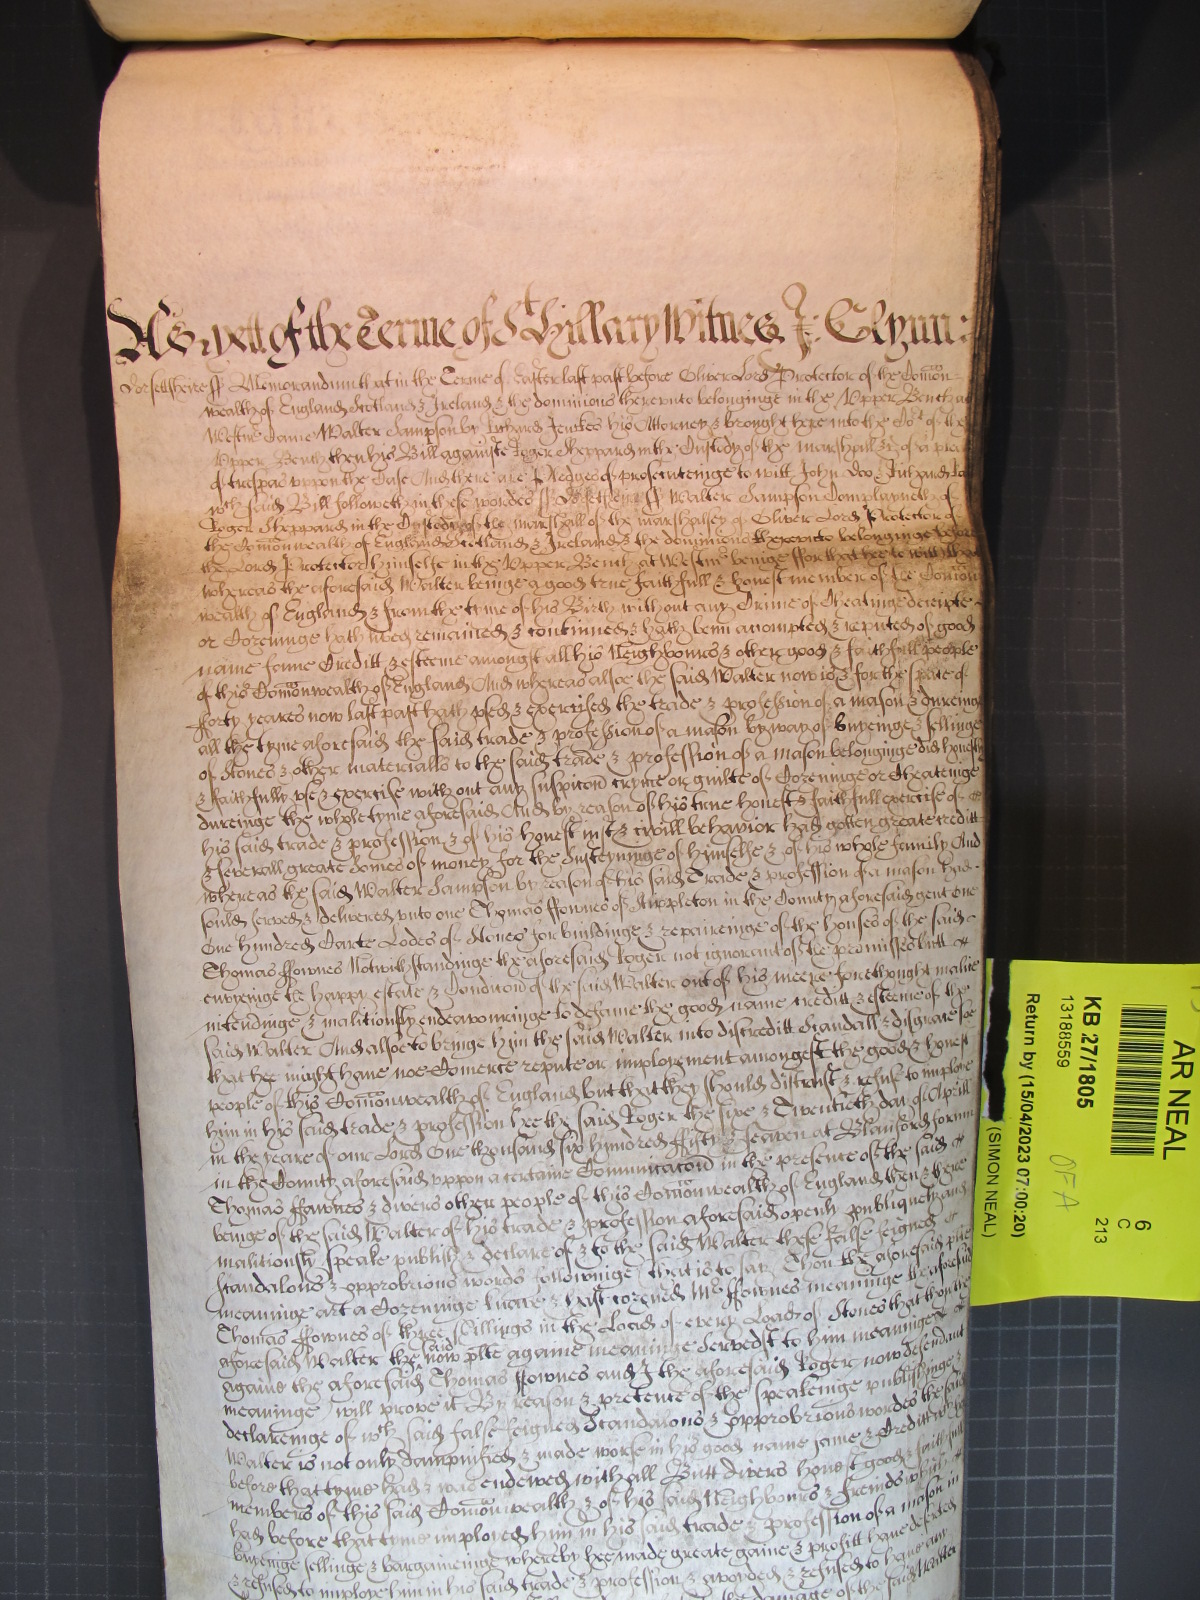 As yett of the Terme of St Hillary Witnes J: Glynn:
Dorsettsheire ss Memorandum that in the Terme of Easter last past before Oliver Lord Protector of the Comon-
wealth of England Scotland & Ireland & the dominions thereunto belonginge in the Upper Bench at
Westmr Came Walter Sampson by Richard Jenkes his Attorney & brought here into the Cot of the
Upper Bench then his Bill againste Roger Sheppard in the Custody of the marshall & of a plea
of trespas uppon the Case And there are Pledges of prosecuteinge to witt John Doo & Richard Roo
wch said Bill followeth in these wordes ss Dorsettsheire ss Walter Sampson Complayneth of
Roger Sheppard in the Custody of the marshall of the marshalsey of Oliver Lord Protector of
the Comonwealth of England Scotland & Ireland & the dominions thereunto belonginge before
the Lord Protector himselfe in the Upper Bench at Westmr beinge ffor that hee to witt That
whereas the aforesaid Walter beinge a good true faithfull & honest member of the Comon
wealth of England & from the tyme of his Birth without any Crime of Cheatinge deceipte
or Cozeninge hath lived remained & continued & hath been accompted & reputed of good
name fame Creditt & esteeme amongst all his Neighbours & other good & faithfull people
of this Comonwealth of England And whereas alsoe the said Walter now is & for the space of
fforty yeares now last past hath used & exercised the trade & profession of a mason & dureing
all the tyme aforesaid the said trade & profession of a mason by way of buyeinge & sellinge
of Stones & other materialls to the said trade & profession of a mason belonginge did honestly
& faithfully use & exercise without any suspicon cryme or guilte of Cozeninge or Cheateinge
dureinge the whole tyme aforesaid And by reason of his true honest & faithfull exercise of
his said trade & profession & of his honest just & civill behavior had gotten great creditt
& severall greate somes of money for the susteyninge of himselfe & of his whole family And
whereas the said Walter Sampson by reason of his said Trade & profession of a mason had
sould served & delivered unto one Thomas ffownes of Stuppleton in the County aforesaid gent one
One hundred Carte Lodes of Stones for buildinge & repaireinge of the houses of the said
Thomas ffownes Notwithstandinge the aforesaid Roger not ignorant of the premisses butt
envyeinge the happy estate & Condicon of the said Walter out of his meere forethought malice
intendinge & malitiously endeavouringe to defame the good name creditt & esteeme of the
said Walter And alsoe to bringe him the said Walter into discreditt scandall & disgrace soe
that hee might have noe Comerce repute or imployment amongest the good & honest
people of this Comonwealth of England but that they should distrust & refuse to imploye
him in his said trade & profession hee the said Roger the sixe & Twentieth day of Aprill
in the yeare of our Lord One thousand six hundred ffifty & seaven at Blanford forum
in the County aforesaid uppon a certaine Comunicacon in the presence of the said
Thomas ffownes & divers other people of this Comonwealth of England then & there
beinge of the said Walter of his trade & profession aforesaid openly publiquely and
malitiously speake publish & declare of & to the said Walter these false feigned
scandalous & opprobrious words followinge that is to say Thou the aforesaid plte
meaninge art a Cozeninge knave & hast cozened Mr ffownes meaninge the aforesaid
Thomas ffownes of three shillings in the Load of every Load of Stones that thou the
aforesaid Walter the said now plte againe meaninge Servedst to him meaninge
againe the aforesaid Thomas ffownes and I the aforesaid Roger now defendant
meaninge will prove it By reason & pretence of the speakeinge publishinge &
declareinge of wch said false feigned Scandalous & opprobrious wordes the said
Walter is not only dampnified & made worse in his good name fame & Creditt
before that tyme had & was endewed withall Butt divers honest good & faithfull
members of this said Comonwealth & of his said Neighbours & freinds which
had before that tyme imployed him in his said trade & profession of a mason in
buyeinge sellinge & bargaineinge whereby hee made greate gaine & profitt have deserted
& refused to imploye him in his said trade & profession & avoyded & refused to have any
the damage of the said Walter
AR NEAL
KB 27/1805
13188559
Return by (15/04/2023 07:00:20)
(SIMON NEAL)
6
C
213
OFA